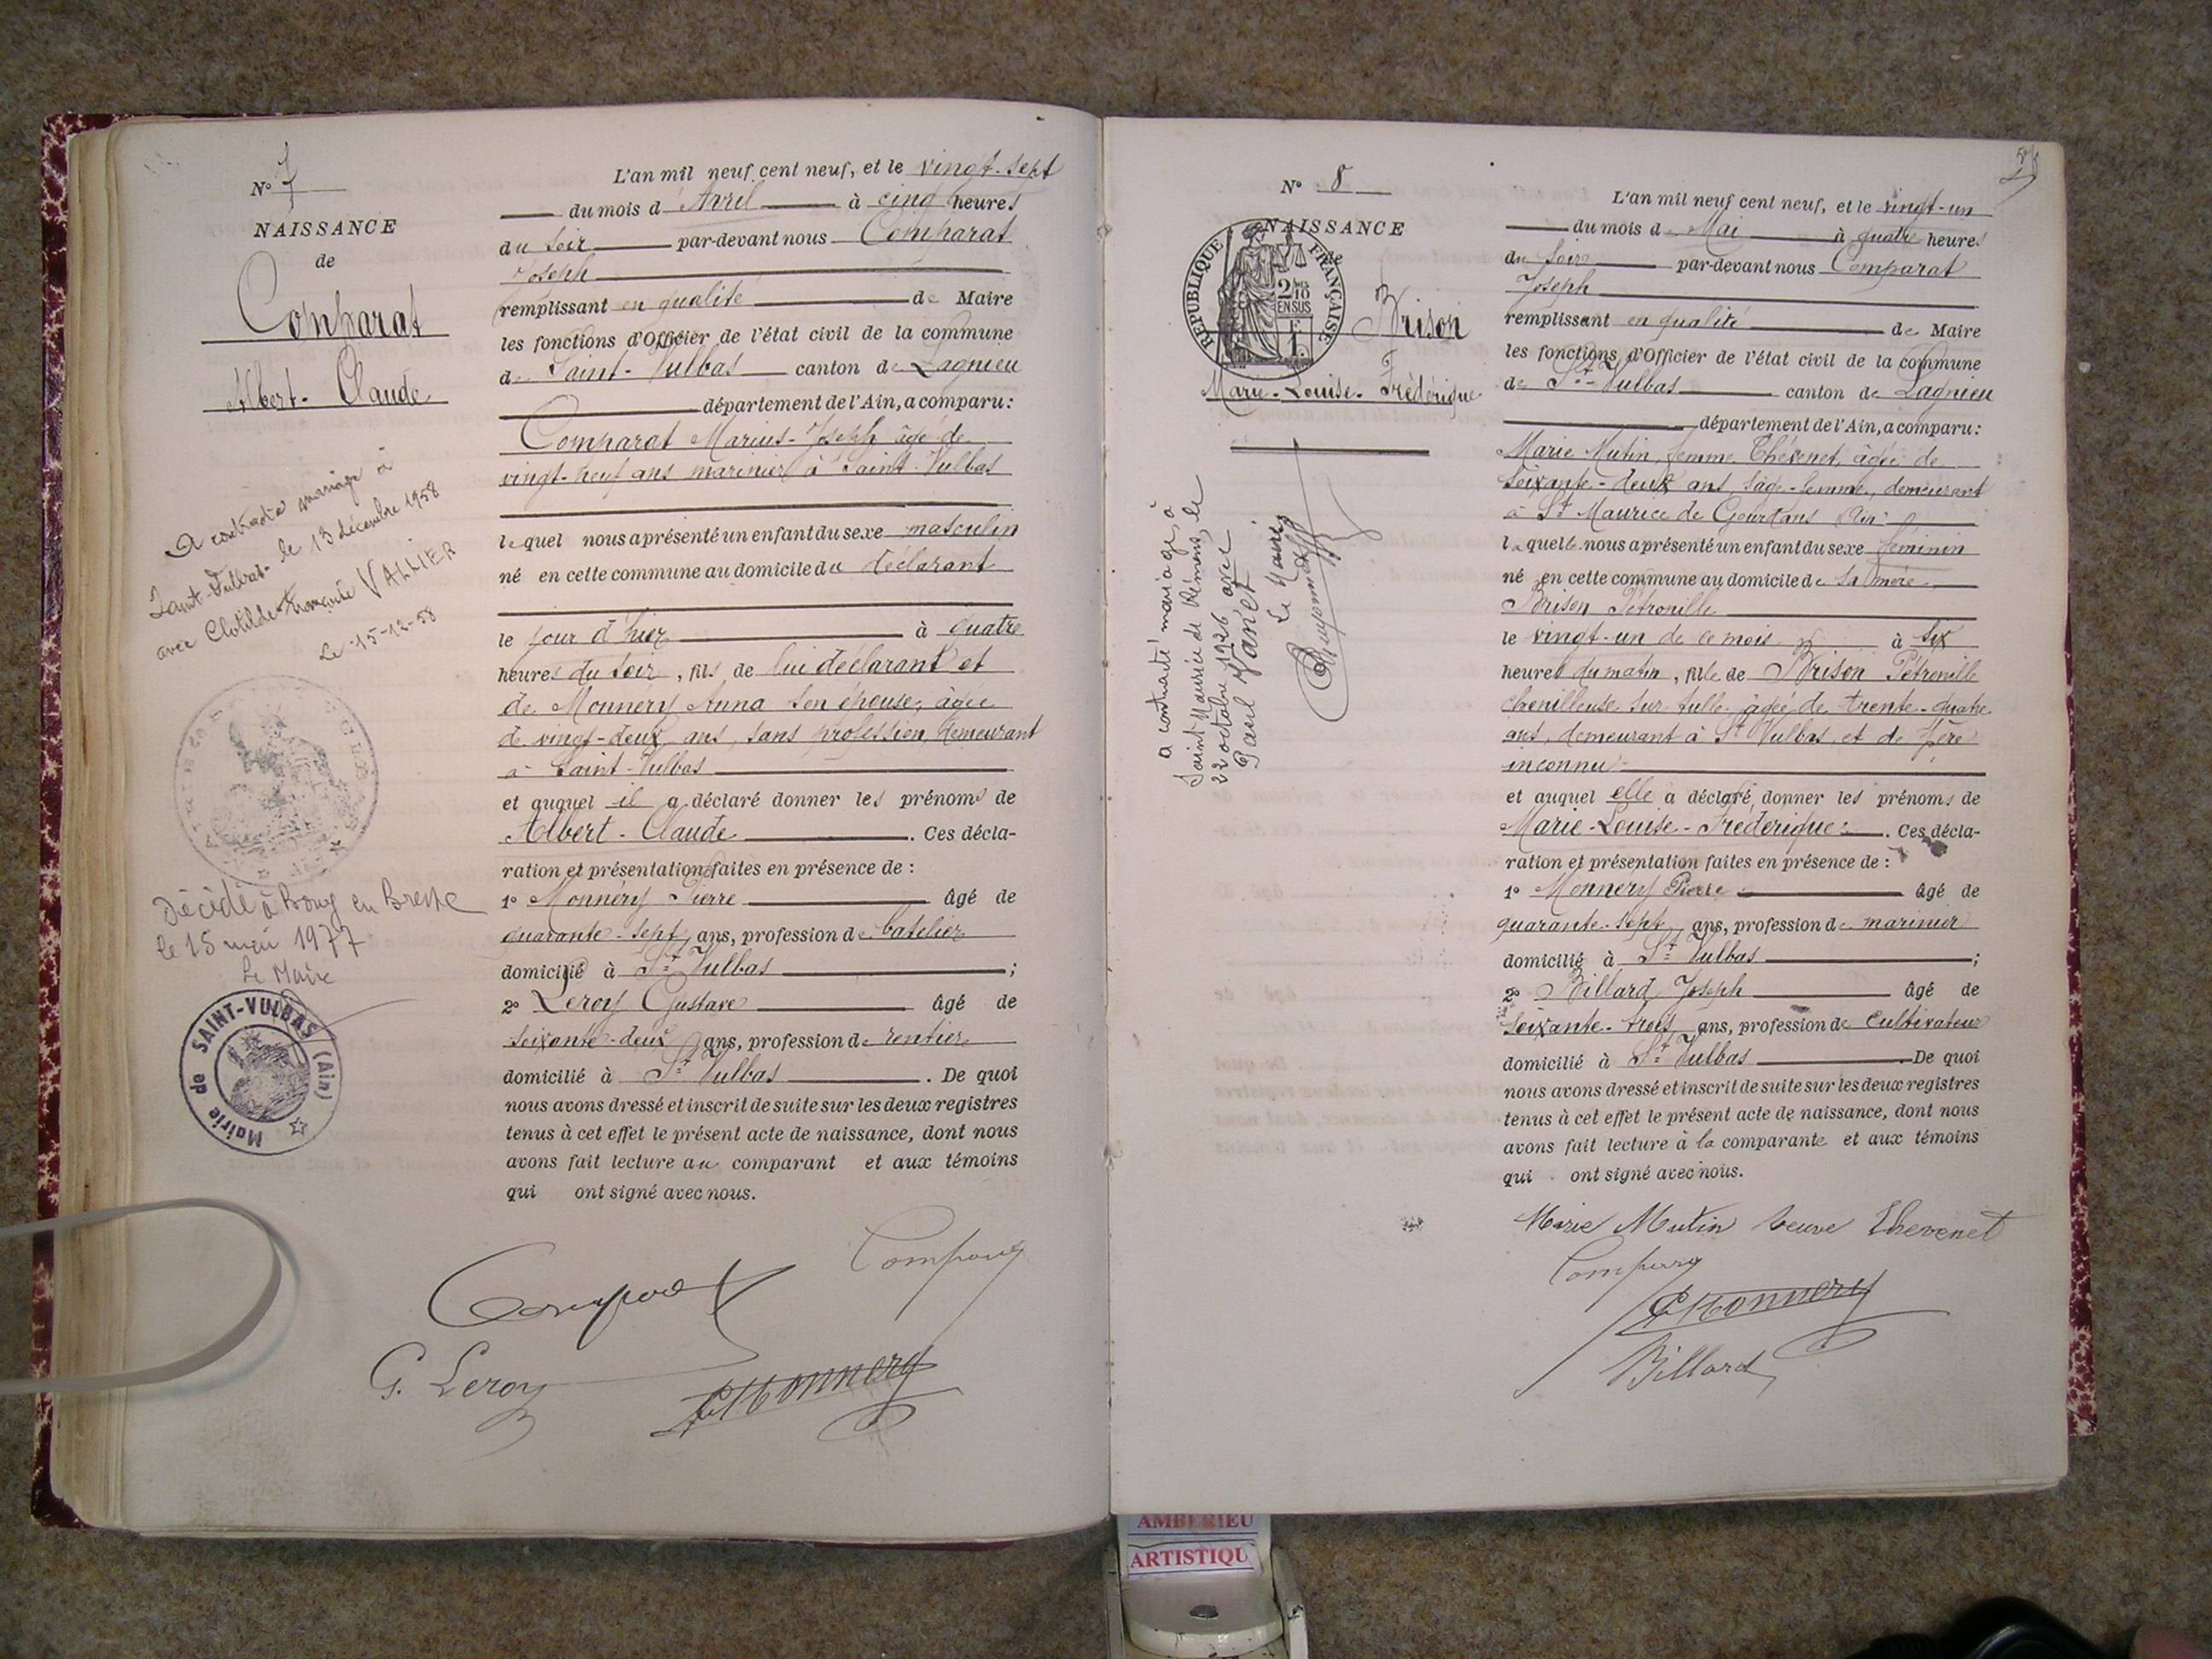 N° 7
NAISSANCE
de
Comparat
Albert-Claude
A contracté mariage à
Saint-Vulbas le 13 décembre 1958
avec Clotilde Françoise VALLIER
Le 15-12-58
Décédé à Bourg en Bresse
le 15 mai 1977
Le Maire
Mairie de SAINT-VULBAS (Ain)
L'an mil neuf cent neuf, et le vingt-sept
du mois d'Avril à cinq heures
du soir par-devant nous Comparat
Joseph
remplissant en qualité de Maire
les fonctions d'Officier de l'état civil de la commune
de Saint-Vulbas canton de Lagnieu
département de l'Ain, a comparu:
Comparat Marius-Joseph âgé de
vingt-neuf ans marinier à Saint-Vulbas
lequel nous a présenté un enfant du sexe masculin
né en cette commune au domicile du déclarant
le jour d'hier à quatre
heures du soir, fils de lui déclarant et
de Monnéry Anna son épouse, âgée
de vingt-deux ans, sans profession, demeurant
à Saint-Vulbas
et auquel il a déclaré donner les prénoms de
Albert-Claude. Ces décla-
ration et présentation faites en présence de:
1° Monnéry Pierre âgé de
quarante-sept ans, profession de batelier
domicilié à St Vulbas;
2° Leroy Gustave âgé de
soixante-deux ans, profession de rentier
domicilié à St Vulbas. De quoi
nous avons dressé et inscrit de suite sur les deux registres
tenus à cet effet le présent acte de naissance, dont nous
avons fait lecture au comparant et aux témoins
qui ont signé avec nous.
Comparat
G. Leroy
P. Monnery
N° 8
NAISSANCE
de
REPUBLIQUE FRANÇAISE
2/10
EN SUS
Brison
Marie-Louise-Frédérique
a contracté mariage, à
Saint Maurice de Rémens, le
22 octobre 1926, avec
Paul Vanet
Le Maire
L'an mil neuf cent neuf, et le vingt-un
du mois de Mai à quatre heures
du soir par-devant nous Comparat
Joseph
remplissant en qualité de Maire
les fonctions d'Officier de l'état civil de la commune
de St-Vulbas canton de Lagnieu
département de l'Ain, a comparu:
Marie Mutin, femme Thévenet, âgée de
soixante-deux ans, sage-femme, demeurant
à St Maurice de Gourdans Ain
laquelle nous a présenté un enfant du sexe féminin
né en cette commune au domicile de sa mère
Brison Pétronille
le vingt-un de ce mois à six
heures du matin, fille de Brison Pétronille
chenilleuse sur tulle, âgée de trente-quatre
ans, demeurant à St Vulbas, et de père
inconnu
et auquel elle a déclaré donner les prénoms de
Marie-Louise-Frédérique. Ces décla-
ration et présentation faites en présence de:
1° Monnery Pierre âgé de
quarante-sept ans, profession de marinier
domicilié à St Vulbas;
2° Billard Joseph âgé de
soixante-trois ans, profession de cultivateur
domicilié à St Vulbas. De quoi
nous avons dressé et inscrit de suite sur les deux registres
tenus à cet effet le présent acte de naissance, dont nous
avons fait lecture à la comparante et aux témoins
qui ont signé avec nous.
Marie Mutin veuve Thevenet
P. Monnery
Billard
AMBERIEU
ARTISTIQU